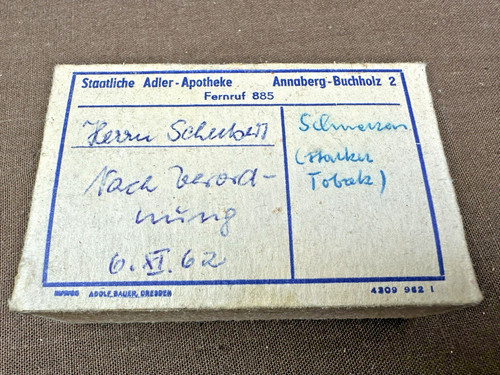 Staatliche Adler-Apotheke Annaberg-Buchholz 2
Fernruf 885
Herrn Schubert
Nach Verord-
nung
6. XI. 62
Schmerzen
(starker
Tobak)
ADOLF BAUER, DRESDEN
4309 962 1